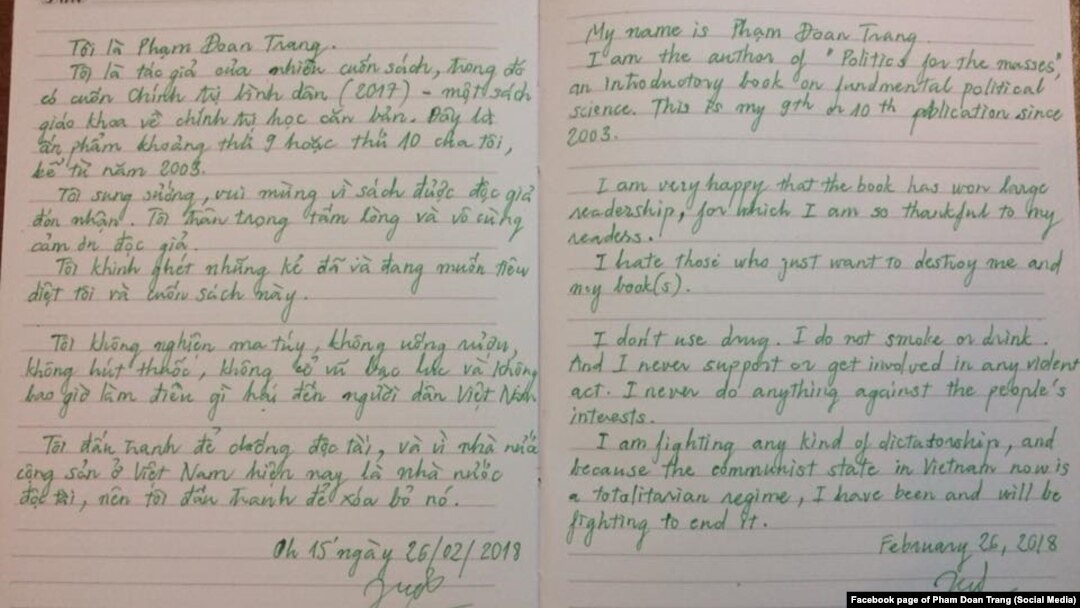 Tôi là Phạm Đoan Trang.
Tôi là tác giả của nhiều cuốn sách, trong đó
có cuốn Chính trị bình dân (2017) - một sách
giáo khoa về chính trị học căn bản. Đây là
ấn phẩm khoảng thứ 9 hoặc thứ 10 của tôi,
kể từ năm 2003.
Tôi sung sướng, vui mừng vì sách được độc giả
đón nhận. Tôi trân trọng tấm lòng và vô cùng
cảm ơn độc giả.
Tôi khinh ghét những kẻ đã và đang muốn tiêu
diệt tôi và cuốn sách này.
Tôi không nghiện ma túy, không uống rượu,
không hút thuốc, không cổ vũ bạo lực và không
bao giờ làm điều gì hại đến người dân Việt Nam
Tôi đấu tranh để chống độc tài, và vì nhà nước
cộng sản ở Việt Nam hiện nay là nhà nước
độc tài, nên tôi đấu tranh để xóa bỏ nó.
0h 15' ngày 26/02/2018
My name is Phạm Đoan Trang.
I am the author of "Politics for the masses",
an introductory book on fundmental political
science. This is my 9th or 10th publication since
2003.
I am very happy that the book has won large
readership, for which I am so thankful to my
readers.
I hate those who just want to destroy me and
my book(s).
I don't use drug. I do not smoke or drink.
And I never support or get involved in any violent
act. I never do anything against the people's
interests.
I am fighting any kind of dictatorship, and
because the communist state in Vietnam now is
a totalitarian regime, I have been and will be
fighting to end it.
February 26, 2018
Facebook page of Pham Doan Trang (Social Media)